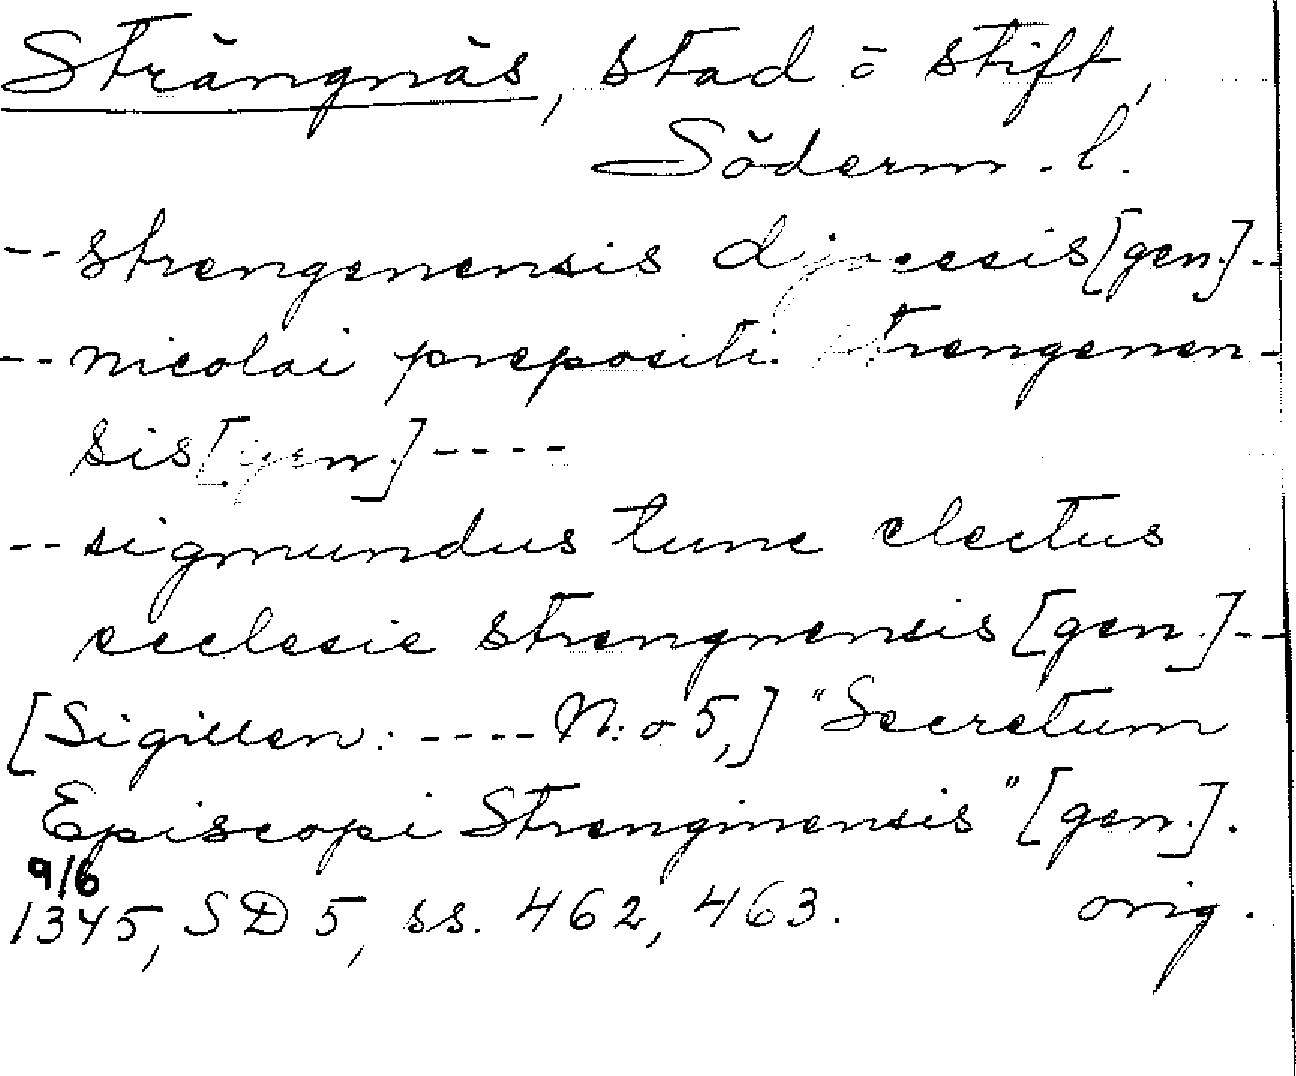 Strängnäs, stad o stift,
Söderm. l.
-- strengenensis djocesis [gen.] --
-- nicolai prepositi strengenen-
sis [gen.] ----
-- sigmundus tunc electus
ecclesie strengnensis [gen.] --
[Sigillen: ---- N:o 5,] "Secretum
Episcopi Strenginensis" [gen.].
9/6
1345, SD 5, ss. 462, 463. orig.